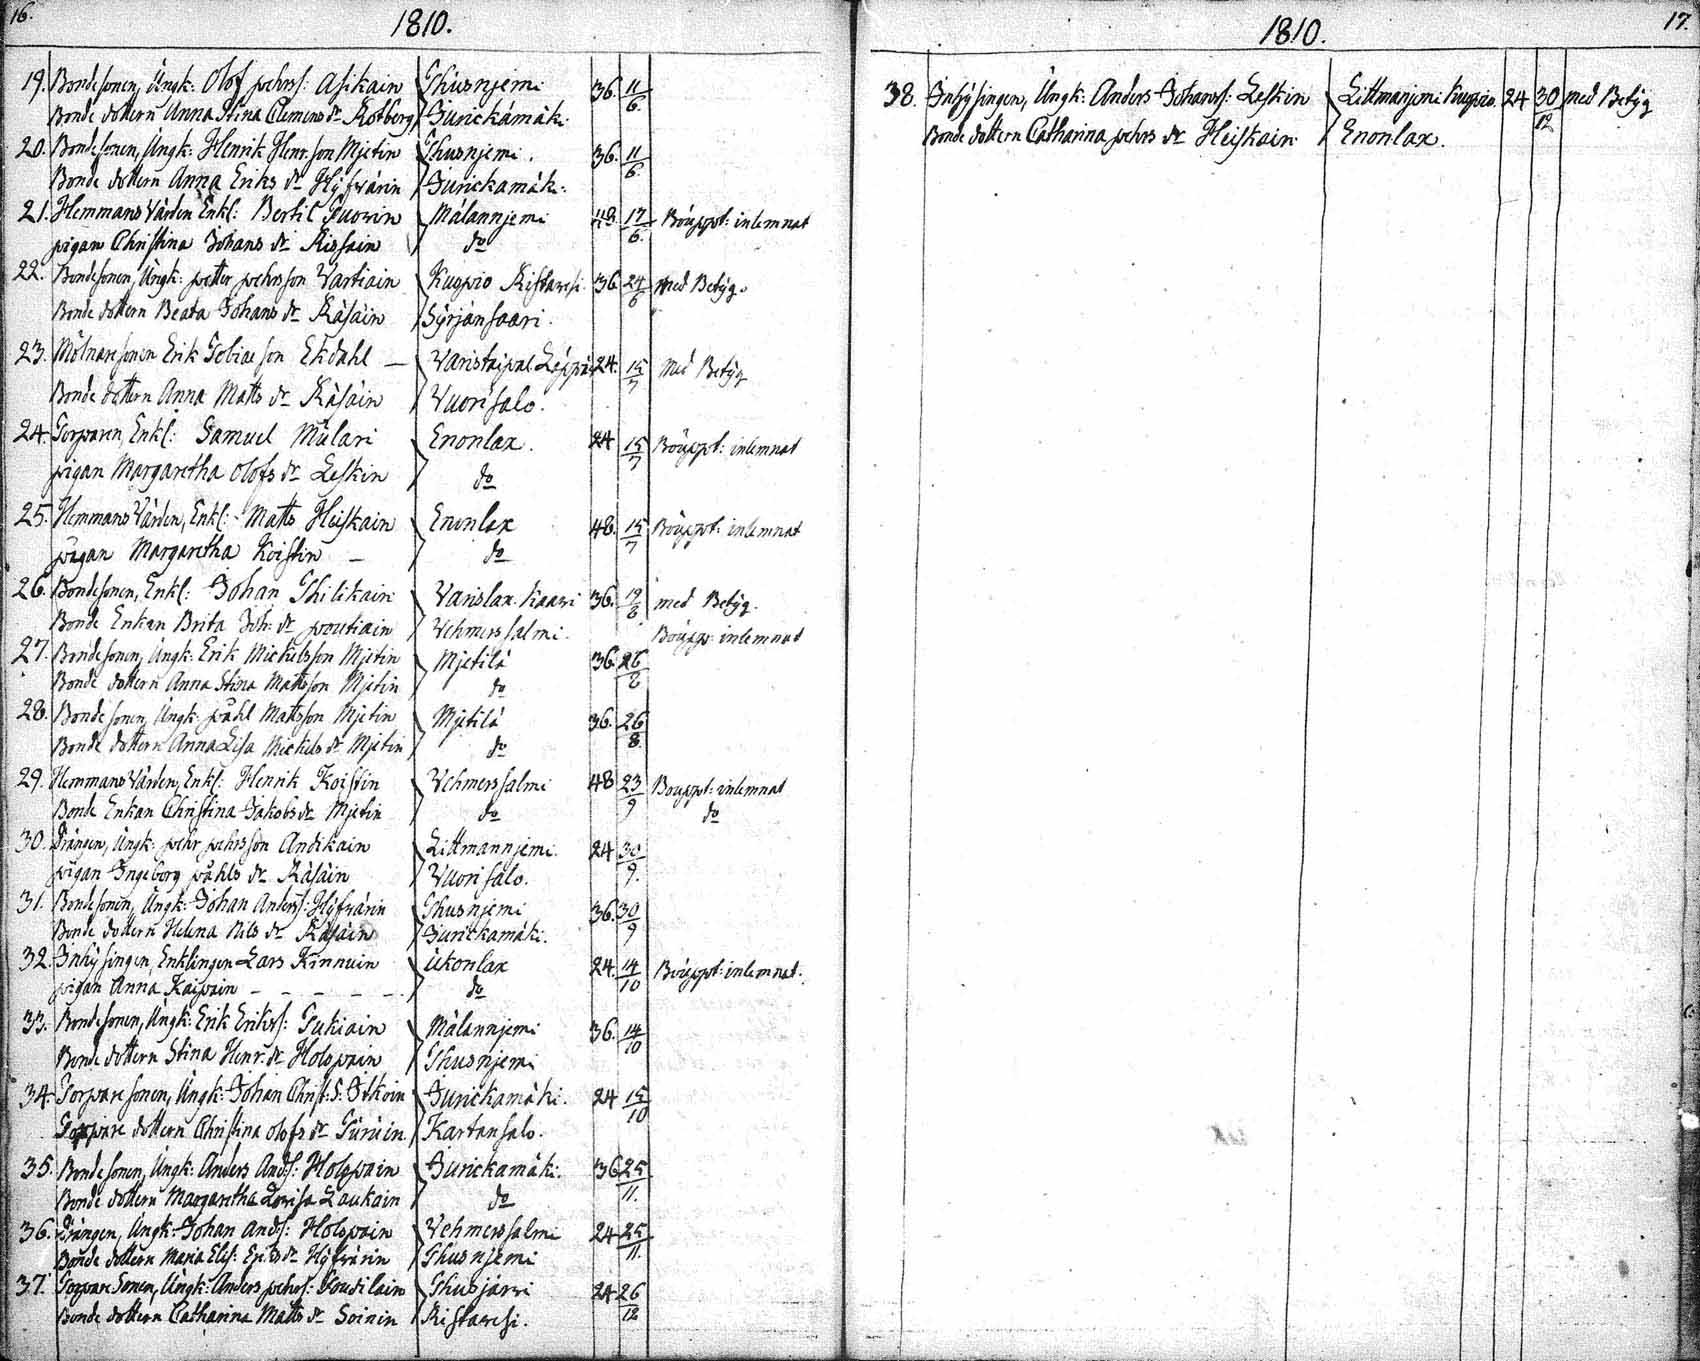 16.
1810.
19. Bondesonen, Ungk: Olof pehrss: Asikain Ihusnjemi 36. 11/6.
Bonde dottern Anna Stina Clemens dr Rotberg Jurickamäki
20. Bondesonen, Ungk: Henrik Henr:son Mjetin Ihusnjemi. 36. 11/6.
Bonde dottern Anna Eriks dr Hyfvärin Jurickamäki.
21. Hemmans Värden Enkl: Bertil Mälannjemi 48 17/6. Böuppt: inlemnat
pigan Christina Johans dr do
22. Bondesonen, Ungk: petter pehrsson Vartiain Kuopio 36 24/6 Med Betyg.
Bonde dottern Beata Johans dr Räsäin Syrjänsaari.
23. Mölnaresonen Erik Tobiae son Ekdahl — 24. 15/7 Med Betyg
Bonde dottern Anna Matts dr Räsäin Vuorisalo.
24. Torparen, Enkl: Samuel Mülari Enonlax. 24 15/7 Böuppt: inlemnat
pigan Margaretha Olofs dr Leskin do
25. Hemmans Värden, Enkl: Matts Heiskain Enonlax 48. 15/7 Böuppt: inlemnat
pigan Margaretha Koistin — do
26. Bondesonen, Enkl: Johan Thilikain Varislax 36. 19/8 med Betyg.
Bonde Enkan Brita Joh: dr poutiain Vehmerssalmi. Böupp: inlemnat
27. Bondesonen, Ungk: Erik Mickelsson Mjetin Mjetilä 36. 26/8
Bonde dottern Anna Stina Mattsson Mjetin do
28. Bondesonen, Ungk: påhl Mattsson Mjetin Mjetilä 36. 26/8.
Bonde dottern Anna Lisa Mickels dr Mjetin do
29. Hemmans Värden, Enkl: Henrik Koistin Vehmerssalmi 48 23/9 Bouppt: inlemnat
Bonde Enkan Christina Jakobs dr Mjetin do do
30. Drängen, Ungk: pehr pehrsson Andikain Littmannjemi. 24 30/9.
pigan Ingeborg påhls dr Räsäin Vuorisalo.
31. Bondesonen, Ungk: Johan Anderss: Hyfvärin Ihusnjemi 36. 30/9
Bonde dottern Helena Nils dr Räsäin Jurickamäki.
32. Inhysingen, Enklingen Lars Kinnuin Ukonlax 24. 14/10 Böuppt: inlemnat.
pigan Anna Kaipain - - - - - do
33. Bondesonen, Ungk: Erik Erikss: Tukiain Mälannjemi 36. 14/10
Bonde dottern Stina Henr: dr Holopain Ihusnjemi
34. Torparesonen, Ungk: Johan Christ: S: Itkoin Jurickamäki. 24 15/10
Torpare dottern Christina olofs dr Kartansalo.
35. Bondesonen, Ungk: Anders Ands: Holopain Jurickamäki. 36 25/11.
Bonde dottern Margaretha Lovisa Laukain do
36. Drängen, Ungk: Johan Ands: Holopain Vehmerssalmi 24 25/11.
Bonde dottern Maria Elis: Eriks dr Hyfvärin Ihusnjemi
37. Torparesonen, Ungk: Anders pehrs: Ihusjärvi 24 26/12
Bonde dottern Catharina Matts dr Soinin Ristavesi.
17.
1810.
38. Inhysingen, Ungk: Anders Johanss: Leskin Littmanjemi Kuopio. 24 30/12 med Betyg
Bonde dottern Catharina pehrs dr Heiskain Enonlax.